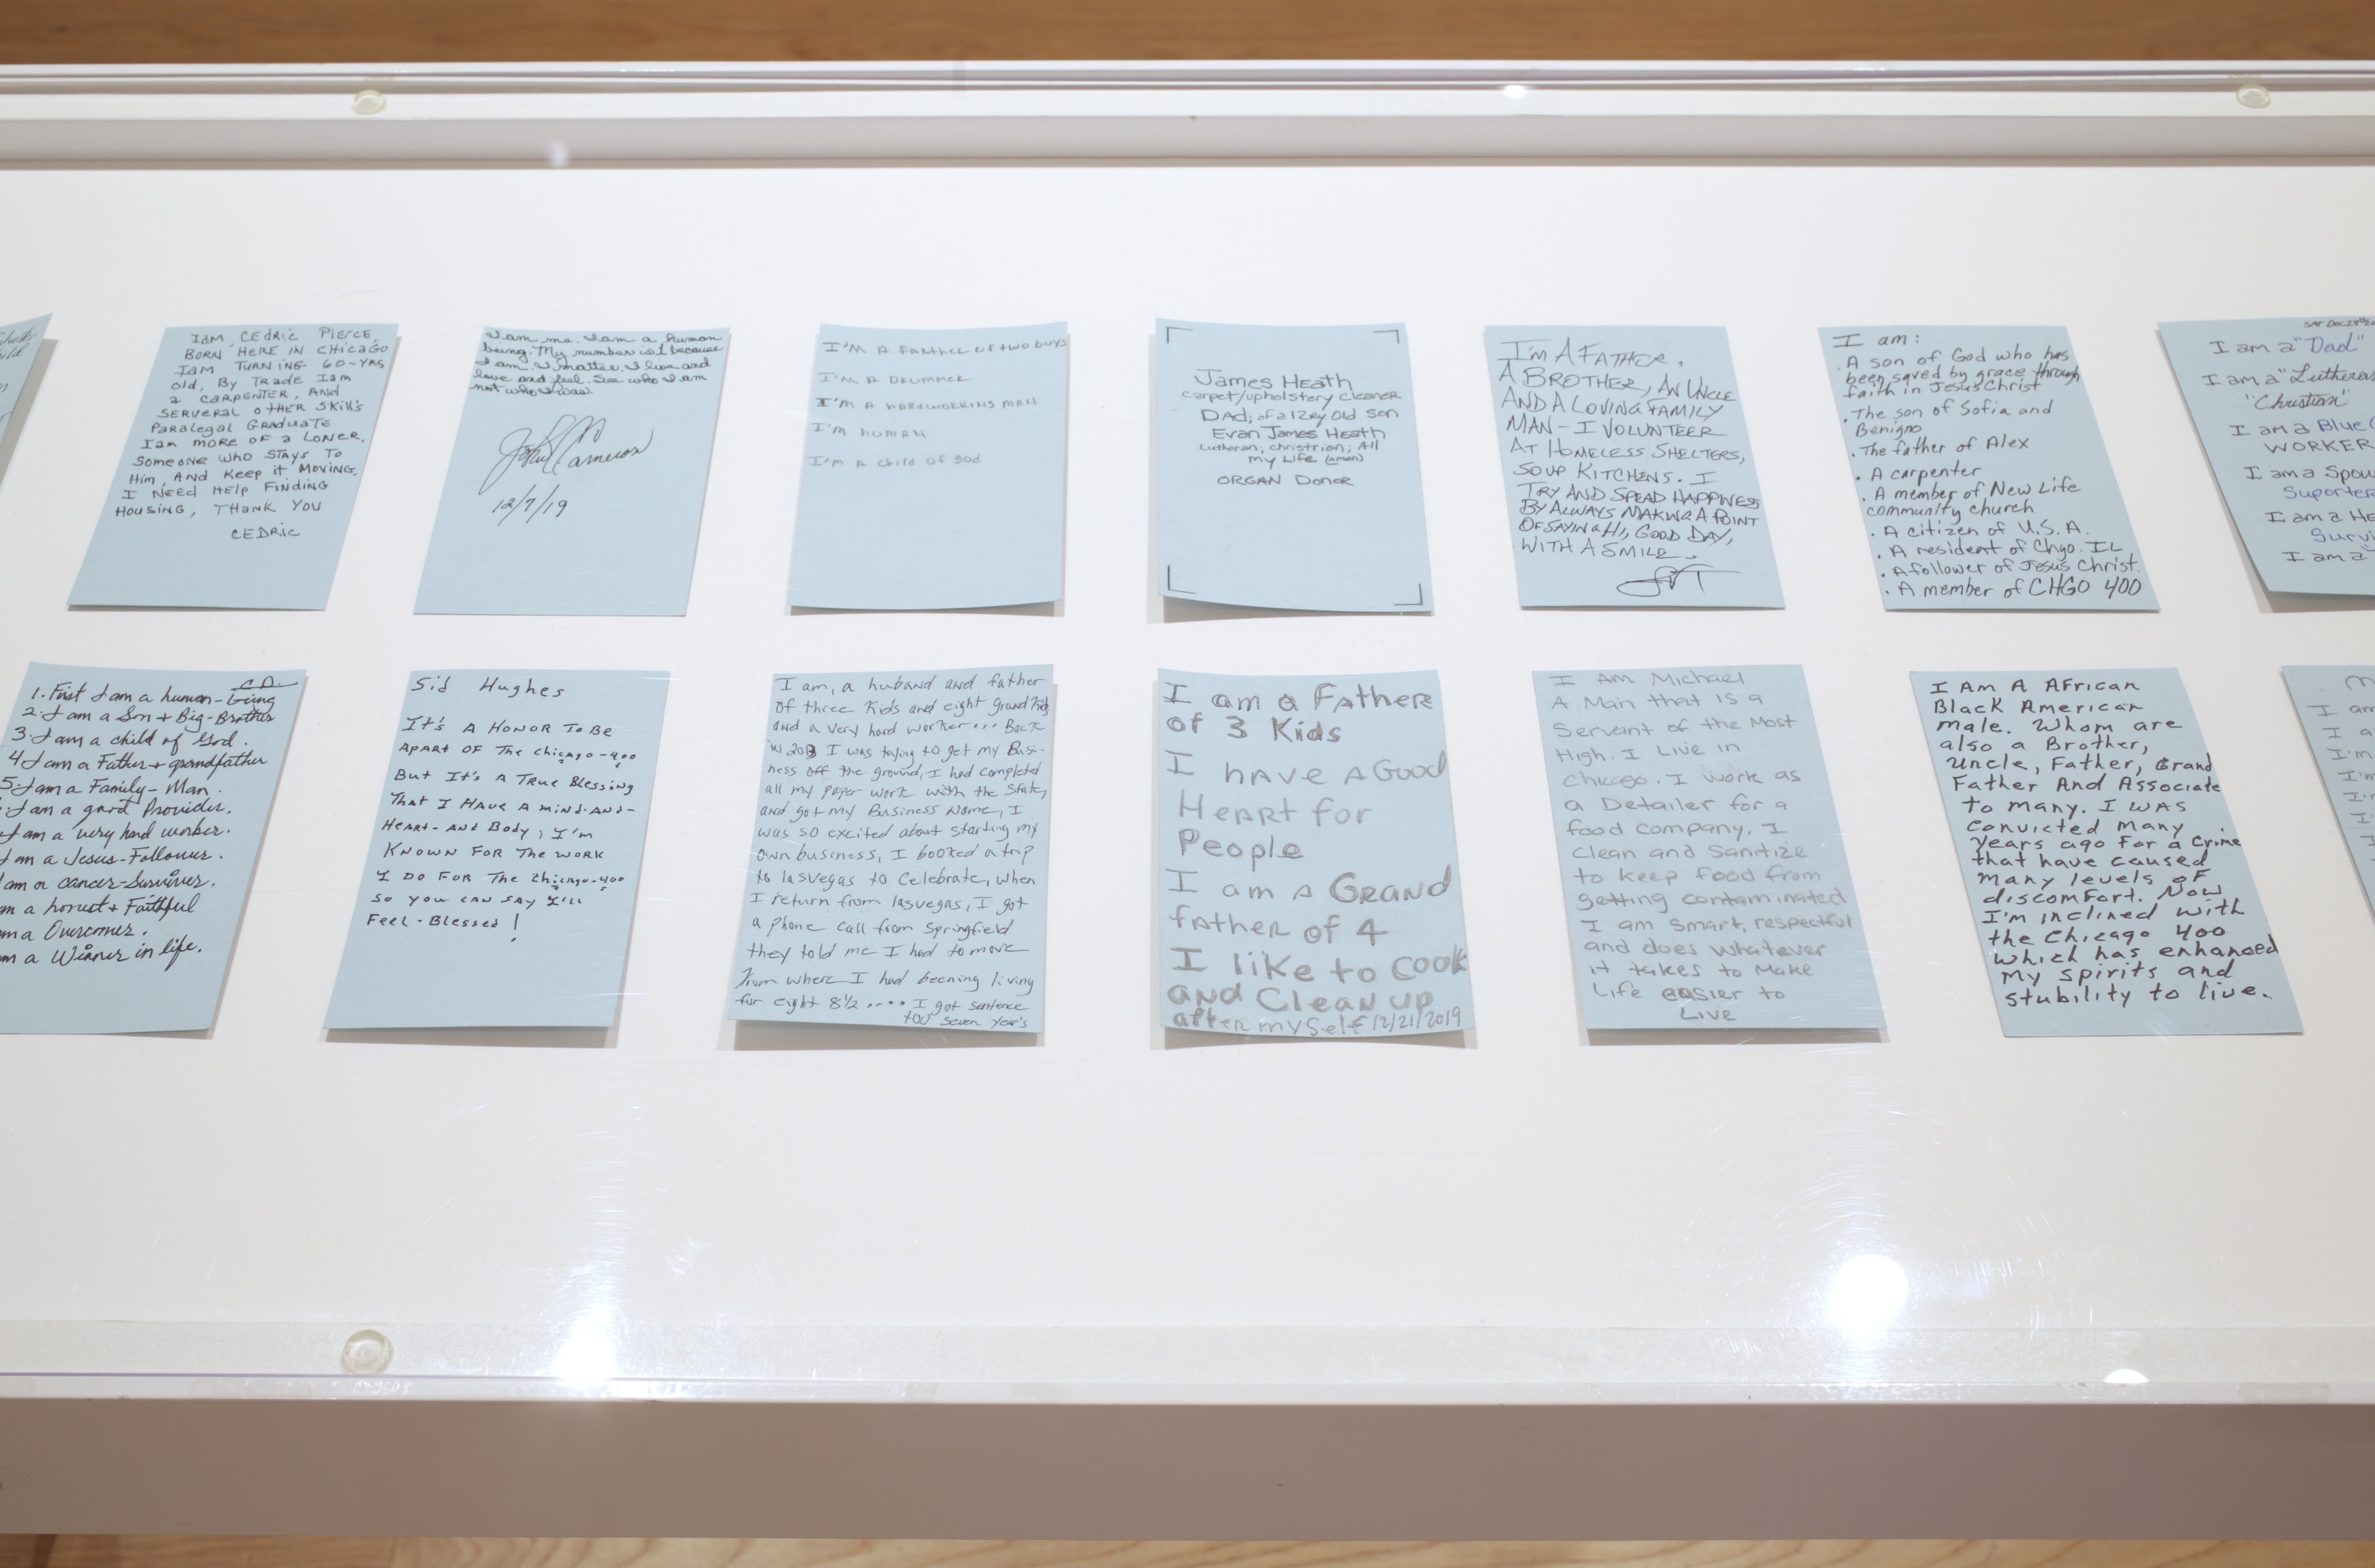 Iam CEdric Pierce,
BORN HERE IN CHICAGO
Iam TURNING 60-YRS
old, By TRADE Iam
a CARPENTER, AND
SERVERAL OTHER SKill's
Paralegal GRADUATE
Iam MORE OF a LONER,
Someone WHO STAYS TO
Him, AND Keep it MOVING,
I NEED HELP FINDING
HOUSING, THANK YOU
CEDRIC
I am me. I am a human
being. My number is 1 because
I am. I matter. I live and
love and feel. See who I am
not who I was.
John Cameron
12/7/19
I'M A FARTHER OF TWO BOYS
I'M A DRUMMER
I'M A HARDWORKING MAN
I'M HUMAN
I'M A Child OF God
James Heath
carpet/upholstery cleaner
DAD; of a 12 ey old son
Evan James Heath
Lutheran; christrion; All
my Life (amen)
ORGAN Donor
I'M A FATHER,
A BROTHER, AN UNCLE
AND A LOVING FAMILY
MAN - I VOLUNTEER
AT HOMELESS SHELTERS,
SOUP KITCHENS. I
TRY AND SPEAD HAPPINESS
BY ALWAYS MAKING A POINT
OF SAYING HI, GOOD DAY,
WITH A SMILE.
I am:
. A son of God who has
been saved by grace through
faith in Jesus Christ
. The son of Sofia and
Benigno
. The father of Alex
. A carpenter
. A member of New Life
community church
. A citizen of U.S.A.
. A resident of Chgo. IL
. A follower of Jesus Christ.
. A member of CHGO 400
I am a "Dad"
I am a "Lutheran
"Christian"
I am a Blue
WORKER
I am a Spou
Suporter
I am a He
Survi
I am a
C.D.
1. First I am a human-being
2. I am a Son + Big-Brother
3. I am a child of God.
4. I am a Father + grandfather
5. I am a Family-Man.
I am a good Provider.
I am a very hard worker.
I am a Jesus-Follower.
I am a cancer-Surviver.
am a honest + Faithful
am a Overcomer.
am a Winner in life.
Sid Hughes
It's A HONOR TO BE
APART OF THE Chicago-400
BUT IT'S A TRUE BLESSING
THAT I HAVE A MIND-AND-
HEART-AND BODY, I'M
KNOWN FOR THE WORK
I DO FOR THE Chicago-400
SO YOU CAN SAY I'LL
FEEL-BLESSED!
I am, a huband and father
of three kids and eight grand kids
and a very hard worker... Back
I was trying to get my Bus-
ness off the ground, I had completed
all my paper work with the State,
and got my Business Name, I
was so excited about starting my
own business, I booked a trip
to lasvegas to celebrate, when
I return from lasvegas, I got
a phone call from Springfield
they told me I had to move
from where I had beening living
for eight 8½ .... I got sentence
too seven year's
I am a Father
of 3 Kids
I have A Good
Heart for
People
I am a GRAND
father of 4
I like to cook
and Clean up
after myself 12/21/2019
I Am Michael
A Main that is a
Servant of the Most
High. I Live in
Chicago. I work as
a Detailer for a
food company. I
Clean and Sanitize
to keep food from
getting contaminated
I am smart, respectful
and does whatever
it takes to Make
Life easier to
Live
I Am A AFrican
Black American
male. Whom are
also a Brother,
Uncle, Father, Grand
Father And Associate
to many. I was
convicted many
years ago For a Crime
that have caused
many levels oF
discomfort. Now
I'm inclined with
the Chicago 400
which has enhanced
my spirits and
stubility to live.
I am
I a
I'm
I'm